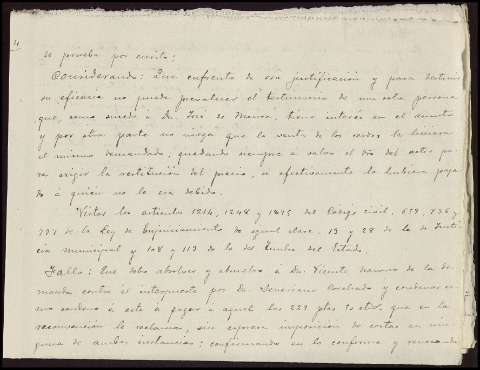 4
se prueba por escrito;
Considerando: Que enfrente de esa justificación y para destruir
su eficacia no puede prevalecer el testimonio de una sola persona
que, como sucede a Dn. José de interés en el asunto
y por otra parte no niega que la venta de los cerdos la hiciera
el mismo demandado, quedando siempre á salvo el dro del actor pa-
ra exigir la restitución del precio, si efectivamente lo hubiera paga-
do á quien no le era debido.
Vistos los artículos 1214, 1248 y 1895 del Código civil, 659,
de la Ley de Enjuiciamiento de igual clase, 19 y 28 de la de Justi-
cia municipal y 108 y 119 de la del Timbre del Estado.
Fallo: Que debo absolver y absuelvo á Dn. Vicente Navarro de la de-
manda contra él interpuesta por Dn. Severiano y condenar co-
mo condeno á éste á pagar á aquel las 239 ptas 50 cts. que en la
reconvención le reclama, sin expresa imposición de costas en nin-
guna de ambas instancias; confirmando en lo conforme y revocando